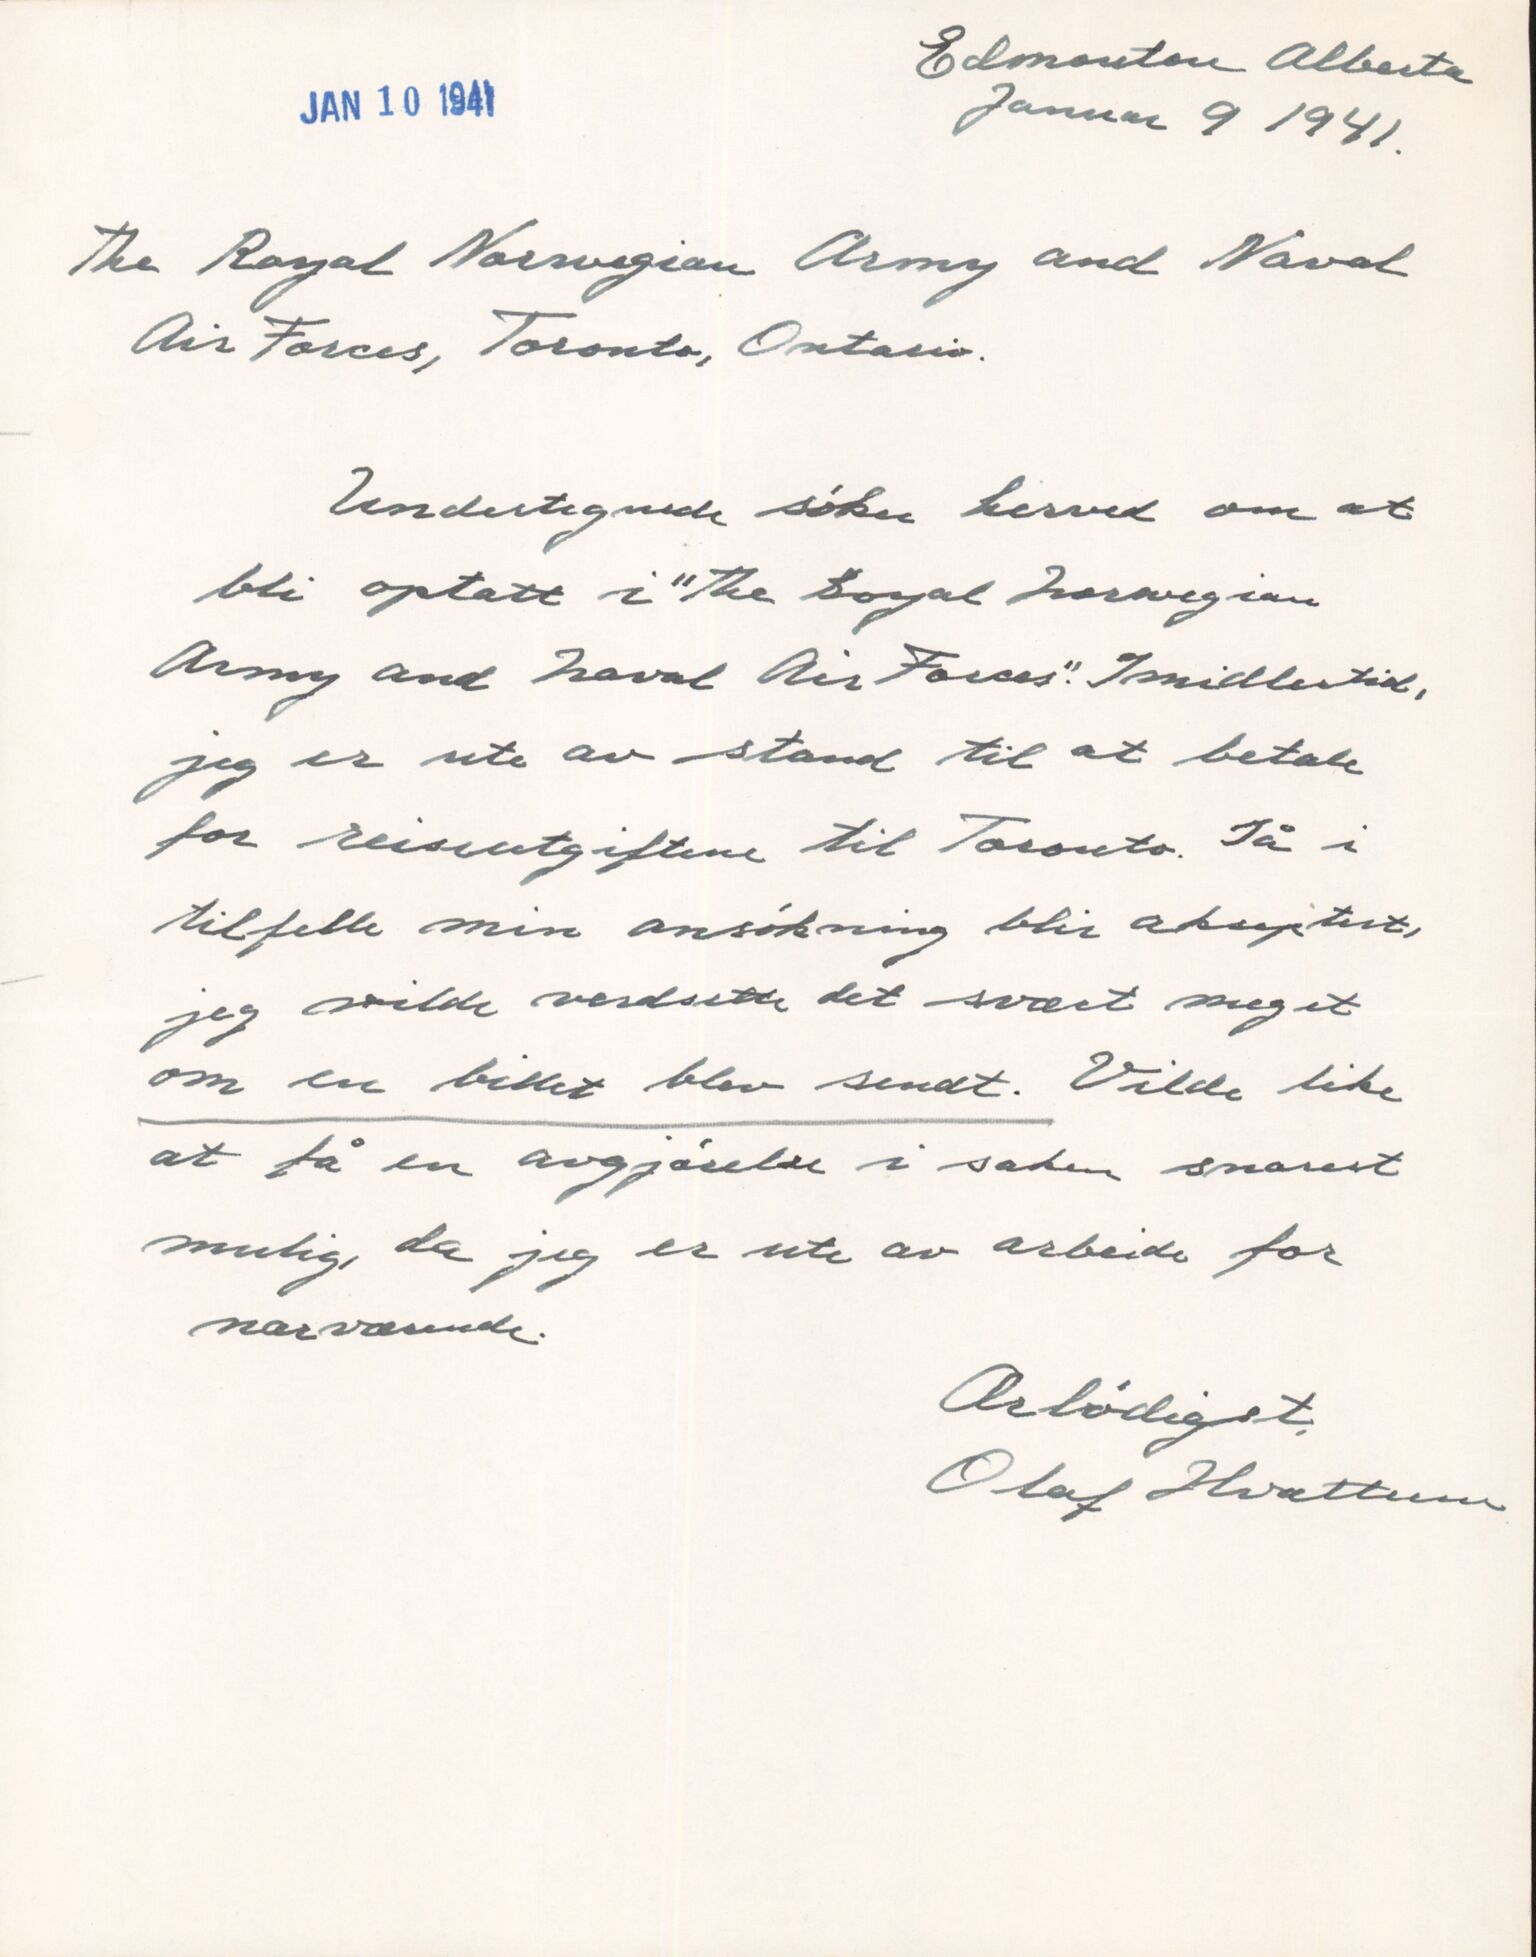 Edmonton Alberta
JAN 10 1941
Januar 9 1941.
The Royal Norwegian Army and Naval
Air Forces, Toronto, Ontario.
Undertegnede söker herved om at
bli optatt i "The Royal Norwegian
Army and Naval Air Forces". Imidlertid,
jeg er ute av stand til at betale
for reiseutgiftene til Toronto. Så i
tilfelle min ansökning blir akseptert,
jeg vilde verdsette det svært meget
om en billet blev sendt. Vilde like
at få en avgjörelse i saken snarest
mulig, da jeg er ute av arbeide for
nærværende.
Ærbödigst,
Olaf Hvattum